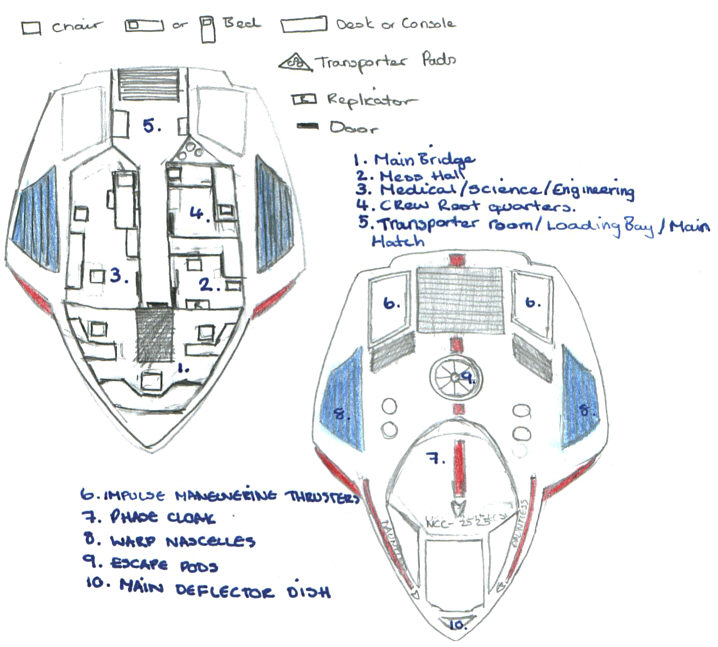 Chair or Bed Desk or Console
Transporter Pads
Replicator
Door
5.
4.
3.
2.
1.
1. Main Bridge
2. Mess Hall
3. Medical/Science/Engineering
4. Crew Rest quarters.
5. Transporter room/Loading Bay/Main
Hatch
6. 6.
9.
8. 8.
7.
NCC-2525
DAUNTLESS
10.
6. IMPULSE MANEUVERING THRUSTERS
7. PHASE CLOAK
8. WARP NASCELLES
9. ESCAPE PODS
10. MAIN DEFLECTOR DISH